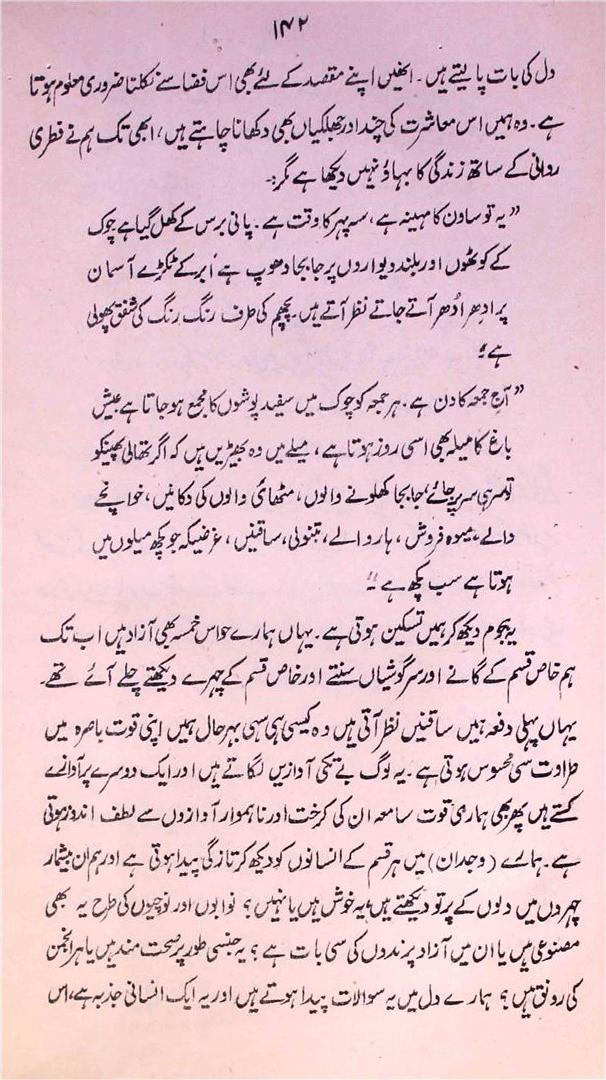 ۱۴۲
دل کی بات پا لیتے ہیں۔ انھیں اپنے مقصد کے لئے بھی اس فضا سے نکلنا ضروری معلوم ہوتا
ہے۔ وہ ہمیں اس معاشرت کی چند اور جھلکیاں بھی دکھانا چاہتے ہیں، ابھی تک ہم نے فطری
روانی کے ساتھ زندگی کا بہاؤ نہیں دیکھا ہے مگر:۔
”یہ تو ساون کا مہینہ ہے، سہ پہر کا وقت ہے۔ پانی برس کے کھل گیا ہے چوک
کے کوٹھوں اور بلند دیواروں پر جابجا دھوپ ہے اَبر کے ٹکڑے آسمان
پر اِدھر اُدھر آتے جاتے نظر آتے ہیں۔ پچھم کی طرف رنگ رنگ کی شفق پھولی
ہے“
”آج جمعہ کا دن ہے۔ ہر جمعہ کو چوک میں سفید پوشوں کا مجمع ہو جاتا ہے عیش
باغ کا میلہ بھی اسی روز ہوتا ہے، میلے میں وہ بھیڑیں ہیں کہ اگر تھالی پھینکو
تو سر ہی سر پر جائے، جابجا کھلونے والوں، مٹھائی والوں کی دکانیں، خوانچے
والے، میوہ فروش، ہار والے، تنبولی، ساقنیں، غرضیکہ جو کچھ میلوں میں
ہوتا ہے سب کچھ ہے“۔
یہ ہجوم دیکھ کر ہمیں تسکین ہوتی ہے۔ یہاں ہمارے حواس خمسہ بھی آزاد ہیں اب تک
ہم خاص قسم کے گانے اور سرگوشیاں سنتے اور خاص قسم کے چہرے دیکھتے چلے آئے تھے۔
یہاں پہلی دفعہ ہمیں ساقنیں نظر آتی ہیں وہ کیسی ہی سہی بہرحال ہمیں اپنی قوت باصرہ میں
طراوت سی محسوس ہوتی ہے۔ یہ لوگ بے تکی آوازیں لگاتے ہیں اور ایک دوسرے پر آوازے
کستے ہیں پھر بھی ہماری قوت سامعہ ان کی کرخت اور ناہموار آوازوں سے لطف اندوز ہوتی
ہے۔ ہمارے (وجدان) میں ہر قسم کے انسانوں کو دیکھ کر تازگی پیدا ہوتی ہے اور ہم ان بیشمار
چہروں میں دلوں کے پرتو دیکھتے ہیں، یہ خوش ہیں یا نہیں؟ نوابوں اور نوچیوں کی طرح یہ بھی
مصنوعی ہیں یا ان میں آزاد پرندوں کی سی بات ہے؟ یہ جنسی طور پر صحت مند ہیں یا ہر انجمن
کی رونق ہیں؟ ہمارے دل میں یہ سوالات پیدا ہوتے ہیں اور یہ ایک انسانی جذبہ ہے، اس